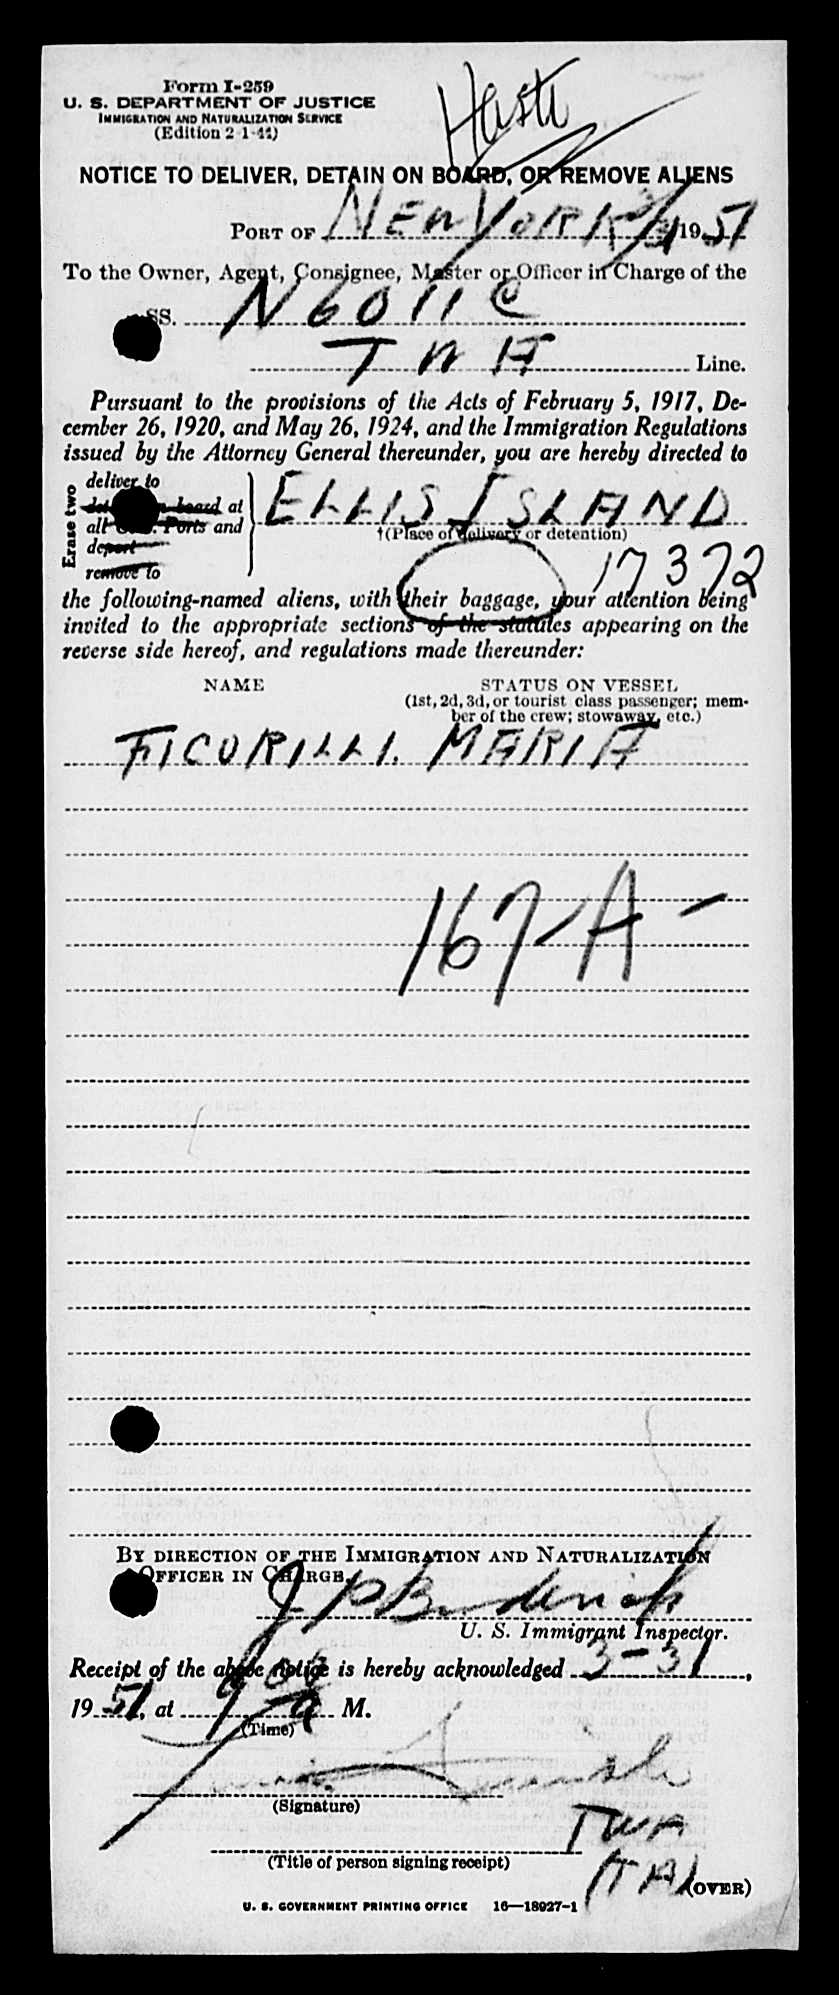 Form I-259
U. S. DEPARTMENT OF JUSTICE
IMMIGRATION AND NATURALIZATION SERVICE
(Edition 2-1-44)
NOTICE TO DELIVER, DETAIN ON BOARD, OR REMOVE ALIENS
PORT OF NEW YORK 3/31 1951
To the Owner, Agent, Consignee, Master or Officer in Charge of the
SS. N6011C
TWA Line.
Pursuant to the provisions of the Acts of February 5, 1917, De-
cember 26, 1920, and May 26, 1924, and the Immigration Regulations
issued by the Attorney General thereunder, you are hereby directed to
Erase two
deliver to
board at
all Ports and
deport
remove to
ELLIS ISLAND
†(Place of delivery or detention)
17372
the following-named aliens, with their baggage, your attention being
invited to the appropriate sections of the statutes appearing on the
reverse side hereof, and regulations made thereunder:
NAME STATUS ON VESSEL
(1st, 2d, 3d, or tourist class passenger; mem-
ber of the crew; stowaway, etc.)
FICORILLI. MARIA
167-A-
BY DIRECTION OF THE IMMIGRATION AND NATURALIZATION
OFFICER IN CHARGE.
J P
U. S. Immigrant Inspector.
Receipt of the above notice is hereby acknowledged 3-31,
1951, at 9 A M.
(Time)
(Signature)
TWA
(Title of person signing receipt)
(TA)
(OVER)
U. S. GOVERNMENT PRINTING OFFICE 16—18927-1